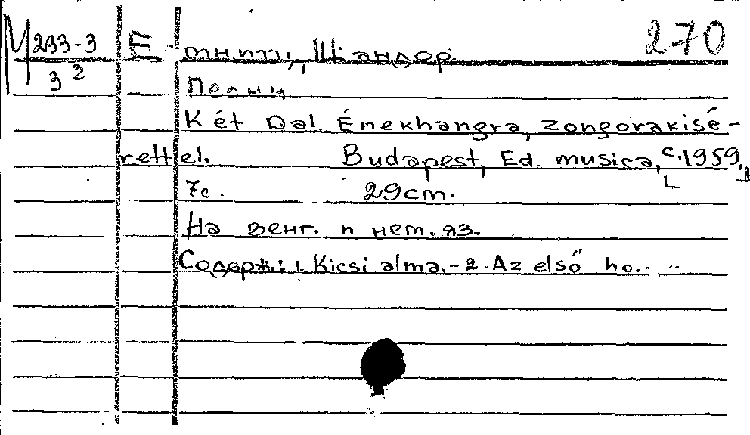 М 233-3 E Шандор 270
3 2
Két Dal Énekhangra, zongorakisé-
rettel. Budapest, Ed. musica, c.1959.
7с. 29cm.
На венг. и нем. яз.
Содерж.: 1. Kicsi alma.-2. Az első ho..